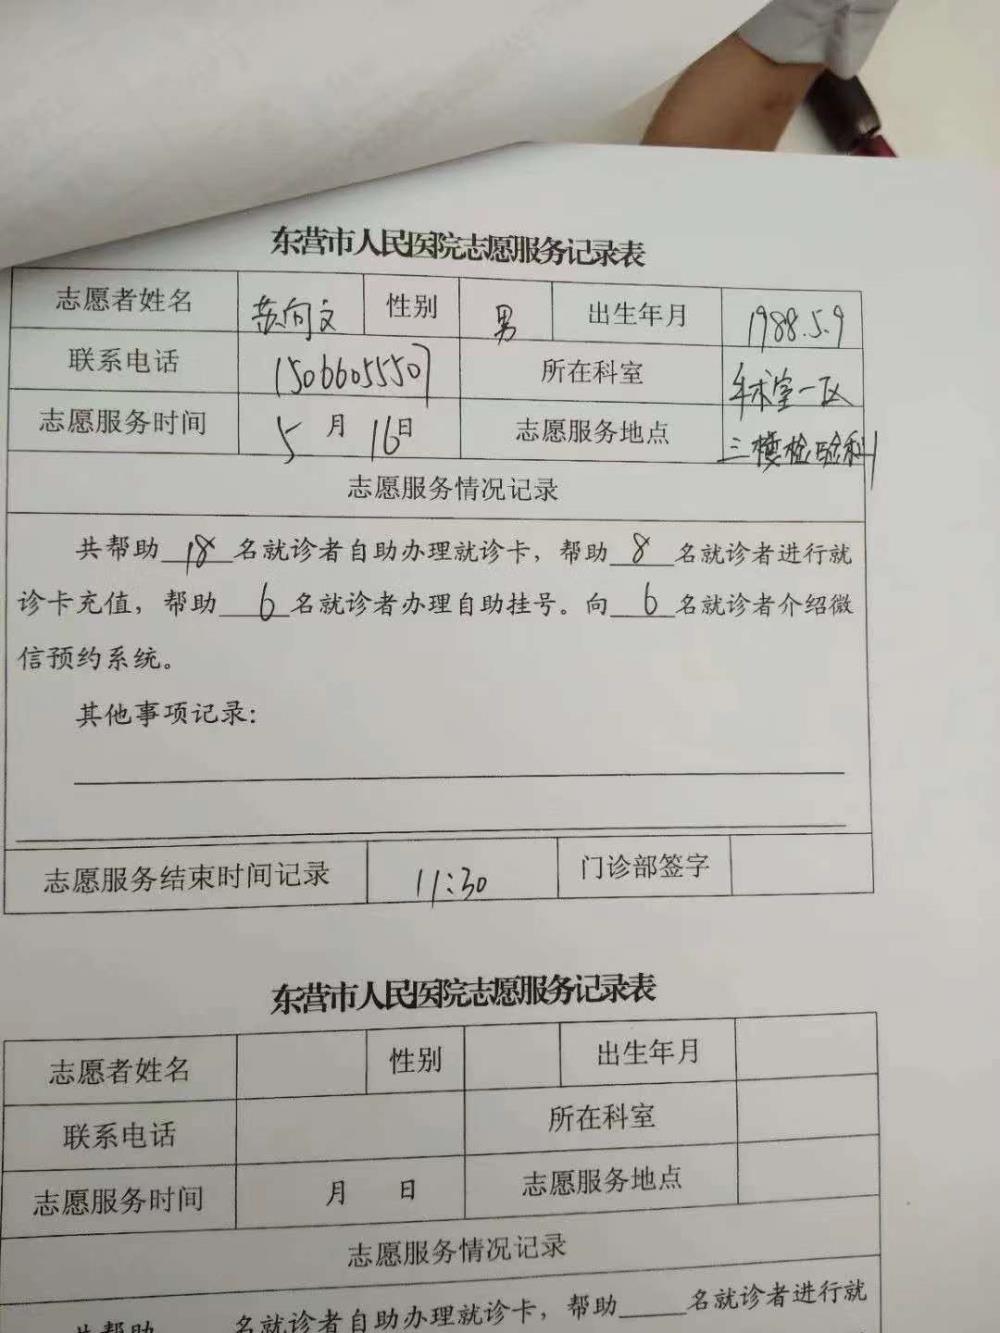 东营市人民医院志愿服务记录表
志愿者姓名 苏向文 性别 男 出生年月 1988.5.9
联系电话 15066055507 所在科室 手术室一区
志愿服务时间 5月16日 志愿服务地点 三楼检验科
志愿服务情况记录
共帮助18名就诊者自助办理就诊卡，帮助8名就诊者进行就
诊卡充值，帮助6名就诊者办理自助挂号。向6名就诊者介绍微
信预约系统。
其他事项记录：
志愿服务结束时间记录 11:30 门诊部签字
东营市人民医院志愿服务记录表
志愿者姓名 性别 出生年月
联系电话 所在科室
志愿服务时间 月 日 志愿服务地点
志愿服务情况记录
共帮助____名就诊者自助办理就诊卡，帮助____名就诊者进行就